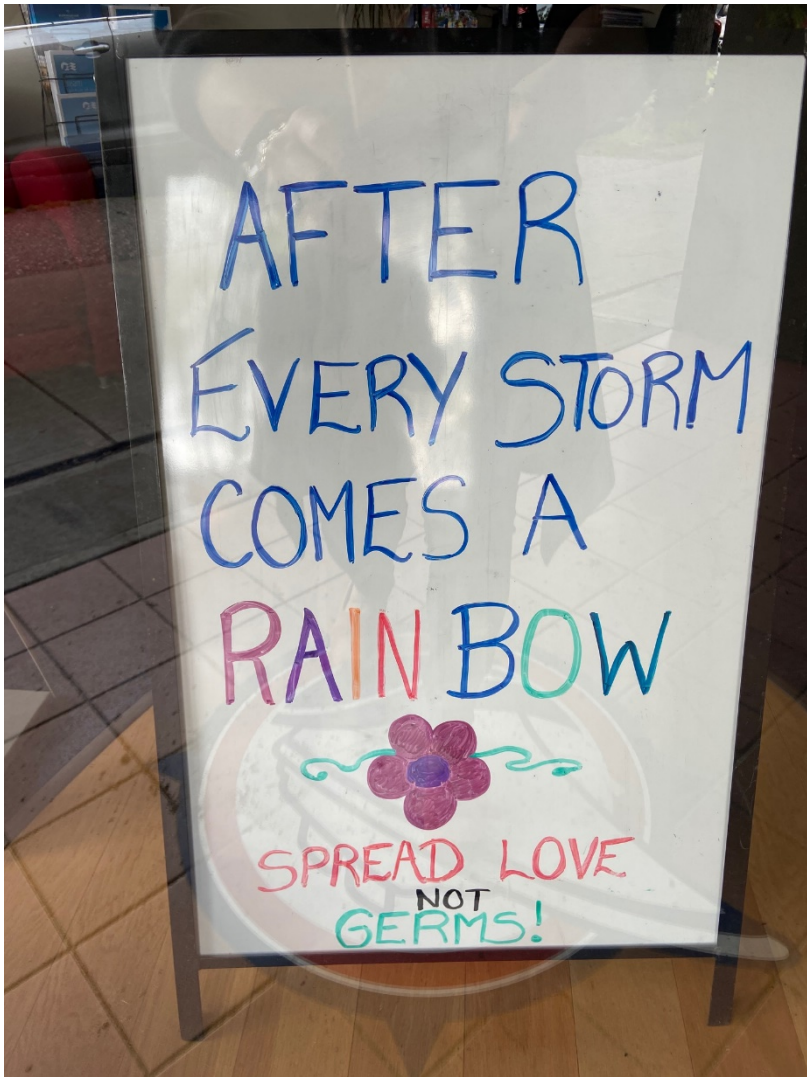 AFTER
EVERY STORM
COMES A
RAINBOW
SPREAD LOVE
NOT
GERMS!